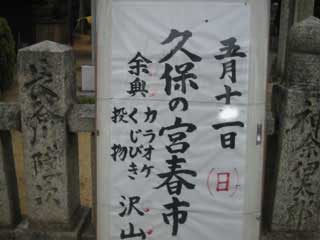 五月十一日(日)
久保の宮春市
余興
カラオケ
くじびき
投物
沢山